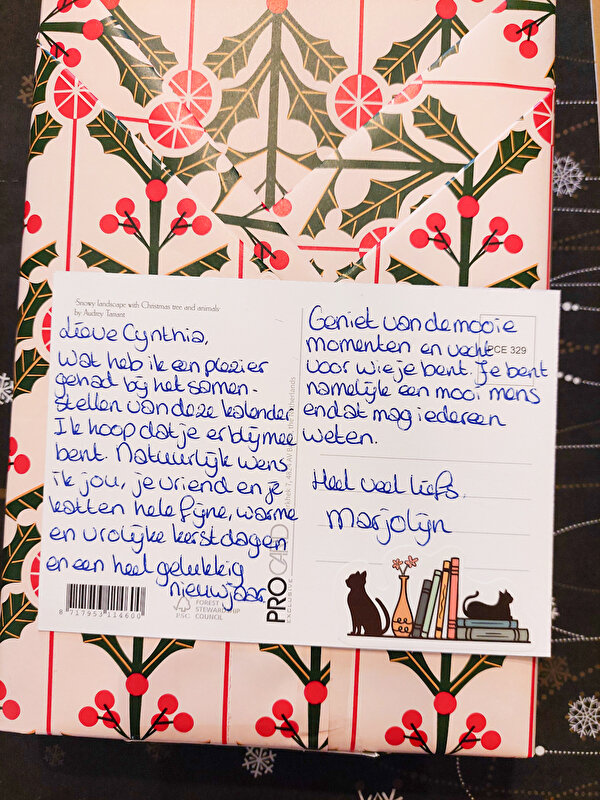 Snowy landscape with Christmas tree and animals
by Audrey Tarrant
Lieve Cynthia,
Wat heb ik een plezier
gehad bij het samen-
stellen van deze kalender
Ik hoop dat je er blij mee
bent. Natuurlijk wens
ik jou, je vriend en je
katten hele fijne, warme
en vrolijke kerstdagen
en een heel gelukkig
nieuwjaar.
8 717953 114600
FSC
FOREST
STEWARDSHIP
COUNCIL
PRO CARD
Geniet van de mooie
momenten en vecht
voor wie je bent. Je bent
namelijk een mooi mens
en dat mag iedereen
weten.
PCE 329
Heel veel liefs,
Marjolijn